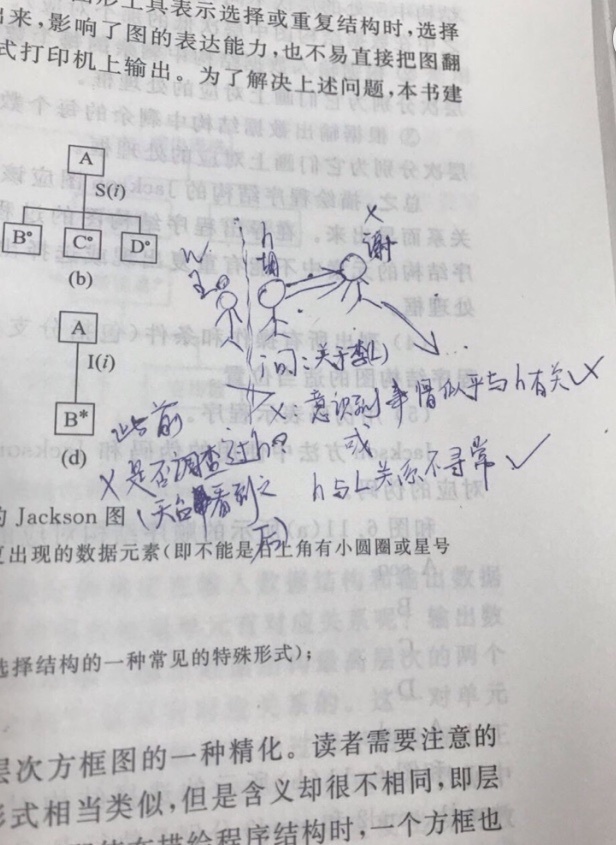 形工具表示选择或重复结构时,选择
出来,影响了图的表达能力,也不易直接把图翻
式打印机上输出。为了解决上述问题,本书建
A
S(i)
B° C° D°
(b)
A
I(i)
B*
(d)
X
谢
i问:关于
X:意识到事情似乎与h有关X
或
h与 关系不寻常✓
此前
X是否调查过h?
(天台 看到之
后)
的 Jackson 图
复出现的数据元素(即不能是右上角有小圆圈或星号
选择结构的一种常见的特殊形式);
层次方框图的一种精化。读者需要注意的
形式相当类似,但是含义却很不相同,即层
在描绘程序结构时,一个方框也